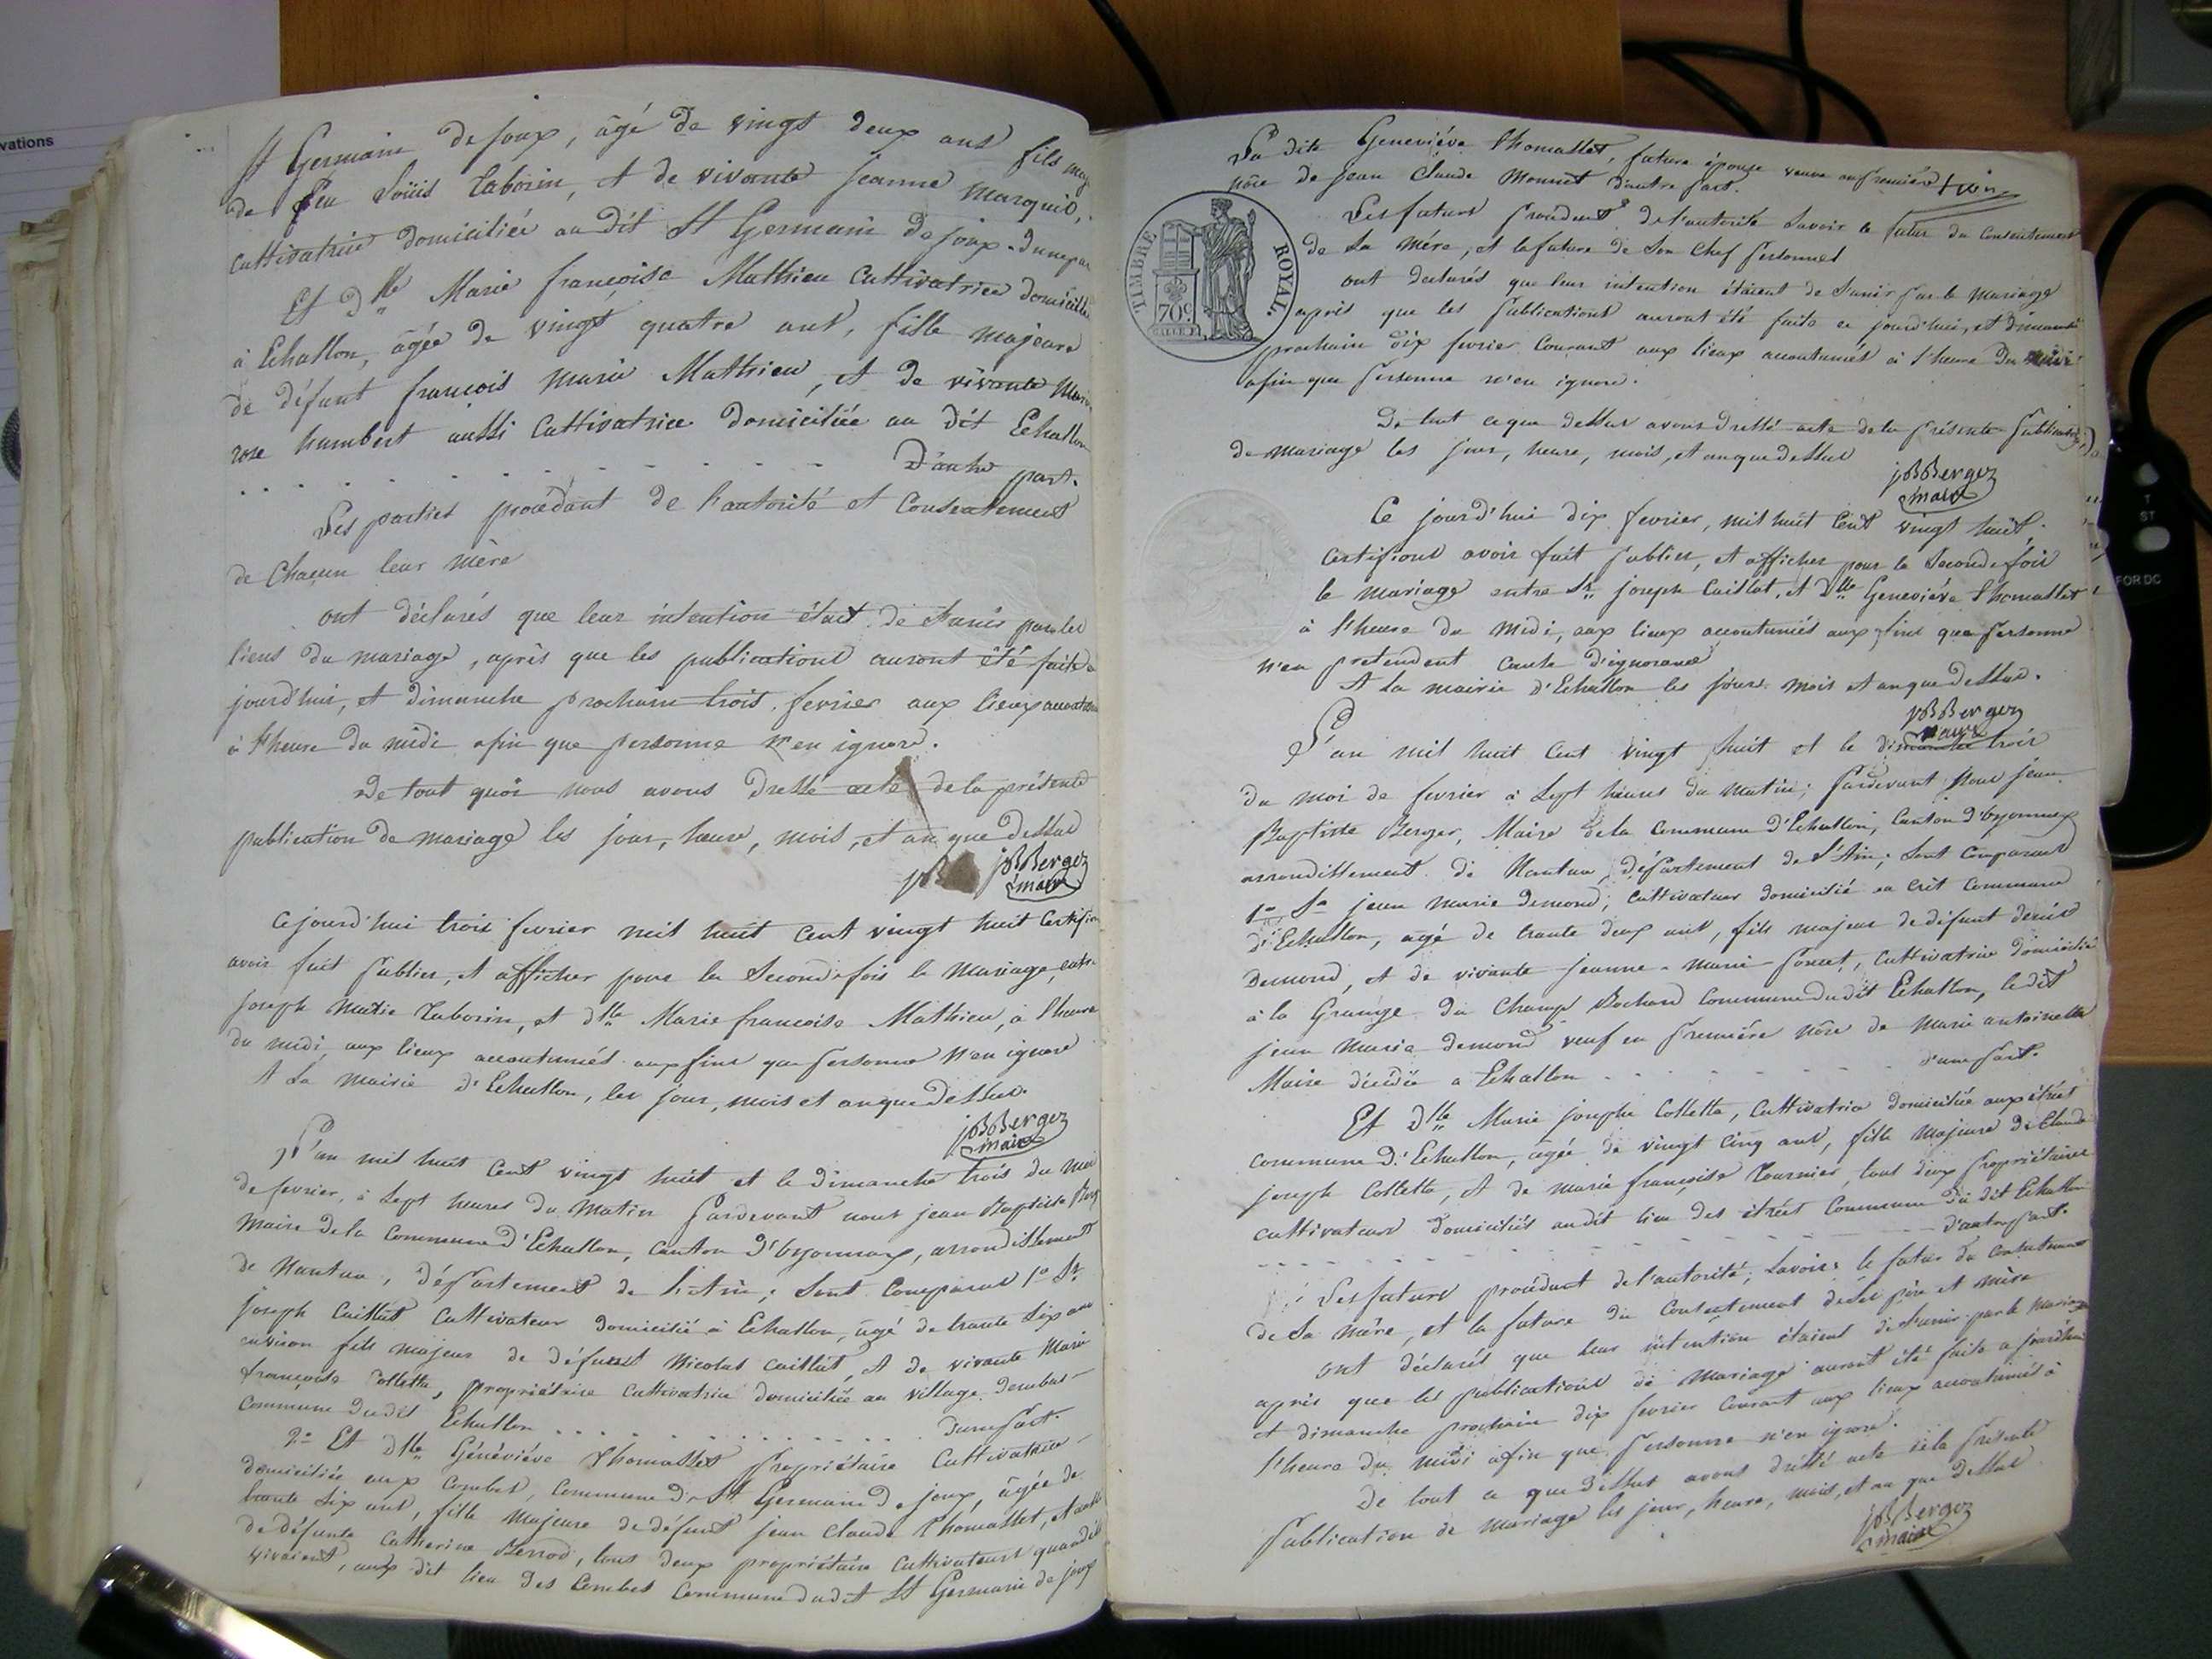 St Germain dejoux, âgé de vingt deux ans fils maj
de feu Loüis Taborin, et de vivante jeanne marquis,
cultivatrice domiciliée au dit St Germain de joux. dunepar
Et dlle Marie françoise Mathieu Cultivatrice domicilié
à Echallon, âgée de vingt quatre ans, fille majeure
de défunt francois marie Mathieu, et de vivante Marie
rose humbert aussi Cultivatrice domiciliée au dit Echallon
D'autre part.
Les parties procédant de l'autorité et Consentement
de Chacun leur mère
ont déclarés que leur intention était de S'unir par les
liens du mariage, après que les publications auront été faite a
jourd'hui, et dimanche prochain trois fevrier aux lieux accoutu
à l'heure du midi afin que personne n'en ignore.
De tout quoi nous avons Dressé acte de la présente
publication de mariage les jour, heure, mois, et an que dessus
jB jBBergez
maire
Cejourd'hui trois fevrier mil huit cent vingt huit Certifion
avoir fait publier, et afficher pour la Seconde fois le Mariage, entre
joseph Marie Taborin, et dlle Marie francoise Mathieu, à l'heure
du midi, aux lieux accoutumés aux fins que personne n'en ignore
A La Mairie d'Echallon, les jour, mois et an que Dessus.
jBBergez
maire
L'an mil huit Cent vingt huit et le dimanche trois du moi
de fevrier, à Sept heures du Matin pardevant nous jean Baptiste Berg
Maire de la Commune d'Echallon, Canton D'oyonnax, arrondissement
de Nantua, département de l'Ain; Sont Comparus 1o Sr.
joseph Caillat Cultivateur domicilié à Echallon, âgé de trante Six ans
environ fils majeur de défunt Nicolas Caillat, et de vivante Marie
françoise Colletta, propriétaire Cultivatrice domiciliée au village
Commune dudit Echallon dune part.
2o Et dlle Généviéve Thomasset propriétaire Cultivatrice
domiciliée aux Combes, Commune de St Germain de joux, âgée de
trante Six ans, fille Majeure de défunt jean Claude Thomasset, et
de défunte Catherine Berrod, tous deux propriétaire Cultivateurs quand ils
vivaient, aux dit lieu des Combes Commune dudit St Germain de joux
La dite Geneviéve Thomasset, future épouse veuve en première
nôce de jean Claude Monnet d'autre part.
Les futurs procédent de l'autorité Savoir le futur du Consentement
de Sa Mére, et la future de Son Chef personnel
ont declarés que leur intention étaient de S'unir par le Mariage
après que les publications auront été faits ce jourd'hui, et dimanche
prochain dix fevrier Courant aux lieux accoutumés à l'heure du midi
afin que personne n'en ignore.
De tout ce que dessus avons dressé acte de la présente publication
de mariage les jour, heure, mois, et an que dessus
jBBergez
maire
Ce jourd'hui dix fevrier, mil huit Cent vingt huit.
Certifions avoir fait publier, et afficher pour la Seconde fois
le mariage entre Sr. joseph Caillat, et dlle Geneviéve Thomasset
à l'heure du Midi, aux lieux accoutumés aux fins que personne
n'en pretendent cause d'ignorance
A La mairie d'Echallon les jour mois et an que Dessus.
jBBergez
maire
L'an mil huit Cent vingt huit et le dimanche trois
du moi de fevrier à Sept heures du Matin; pardevant Nous jean
Baptiste Bergez, Maire de la Commune d'Echallon, Canton d'oyonnax
arrondissement de Nantua, département de l'Ain; Sont Comparus
1o Sr jean Marie demond, Cultivateur domicilié au Crêt Commune
d'Echallon, âgé de trante deux ans, fils majeur de défunt denis
Demond, et de vivante jeanne-marie poncet, Cultivatrice domiciliée
à la Grange du Champ Bochard Commune dudit Echallon, le dit
jean Marie demond veuf en première nôce de Marie antoinette
Maire décédée a Echallon d'une part.
Et Dlle Marie josephe Colletta, Cultivatrice domiciliée aux étrèt
Commune d'Echallon, agée de vingt Cinq ans, fille Majeure de Claude
joseph Colletta, et de marie françoise Tournier, tous deux propriétaires
cultivateurs domiciliés audit lieu des étrèt Commune du dit Echallon
d'autre part.
Les futurs procédant de l'autorité; Savoir: le futur du Consentement
de Sa Mère, et la future du Consentement de Ses père et mère
ont déclarés que leur intention étaient de S'unir par le Mariage
après que les publications de Mariage auront été faite ajourd'hui
et dimanche prochain dix fevrier Courant aux lieux accoutumés à
l'heure du midi afin que personne n'en ignore.
De tout ce que dessus avons dressé acte de la présente
publication de mariage les jour, heure, mois, et an que dessus
jBBergez
maire
TIMBRE ROYAL.
70c
vations
ST
FOR DC